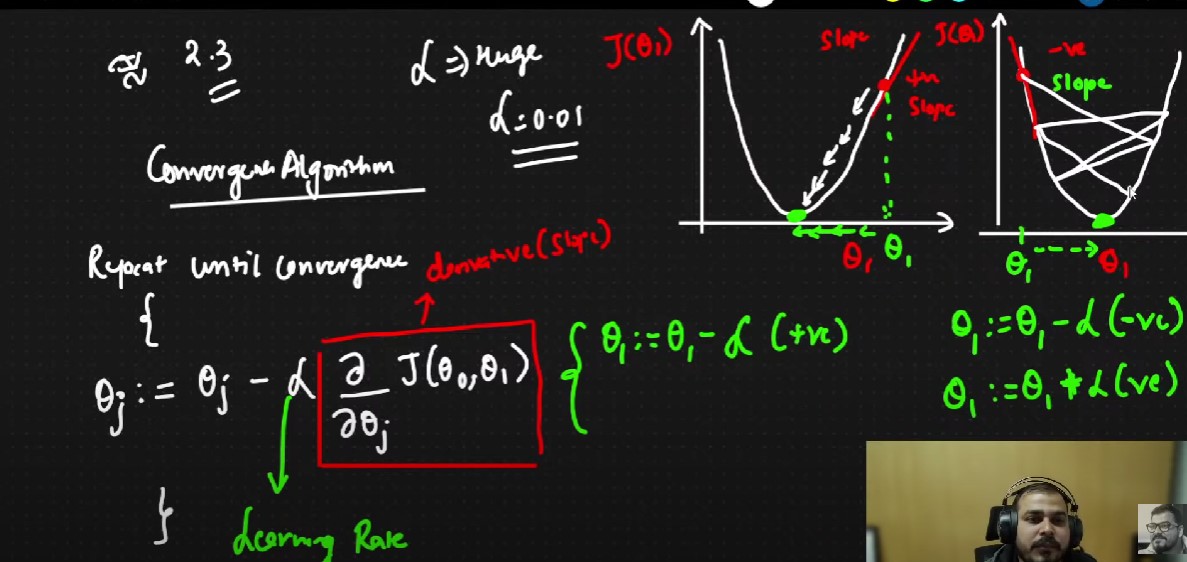 ≈ 2.3
α => Huge
α = 0.01
Convergence Algorithm
Repeat until convergence
{
θj := θj - α ∂/∂θj J(θ0, θ1)
}
derivative (slope)
Learning Rate
J(θ1)
slope
+ve
slope
θ1 θ1
J(θ)
-ve
slope
θ1 θ1
{ θ1 := θ1 - α (+ve)
θ1 := θ1 - α (-ve)
θ1 := θ1 + α (ve)